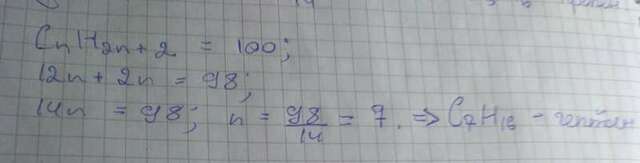 CnH2n+2 = 100;
12n + 2n = 98;
14n = 98; n = 98/14 = 7. => C7H16 - гептан